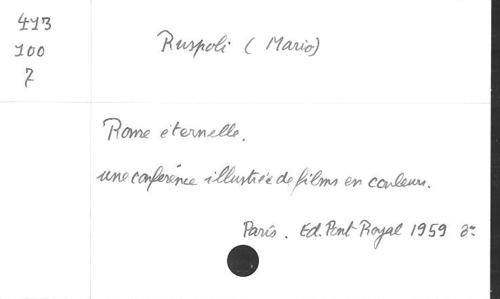 413
100
7
Ruspoli (Mario)
Rome éternelle.
une conférence illustrée de films en couleurs.
Paris. Ed. Pont Royal 1959 8º